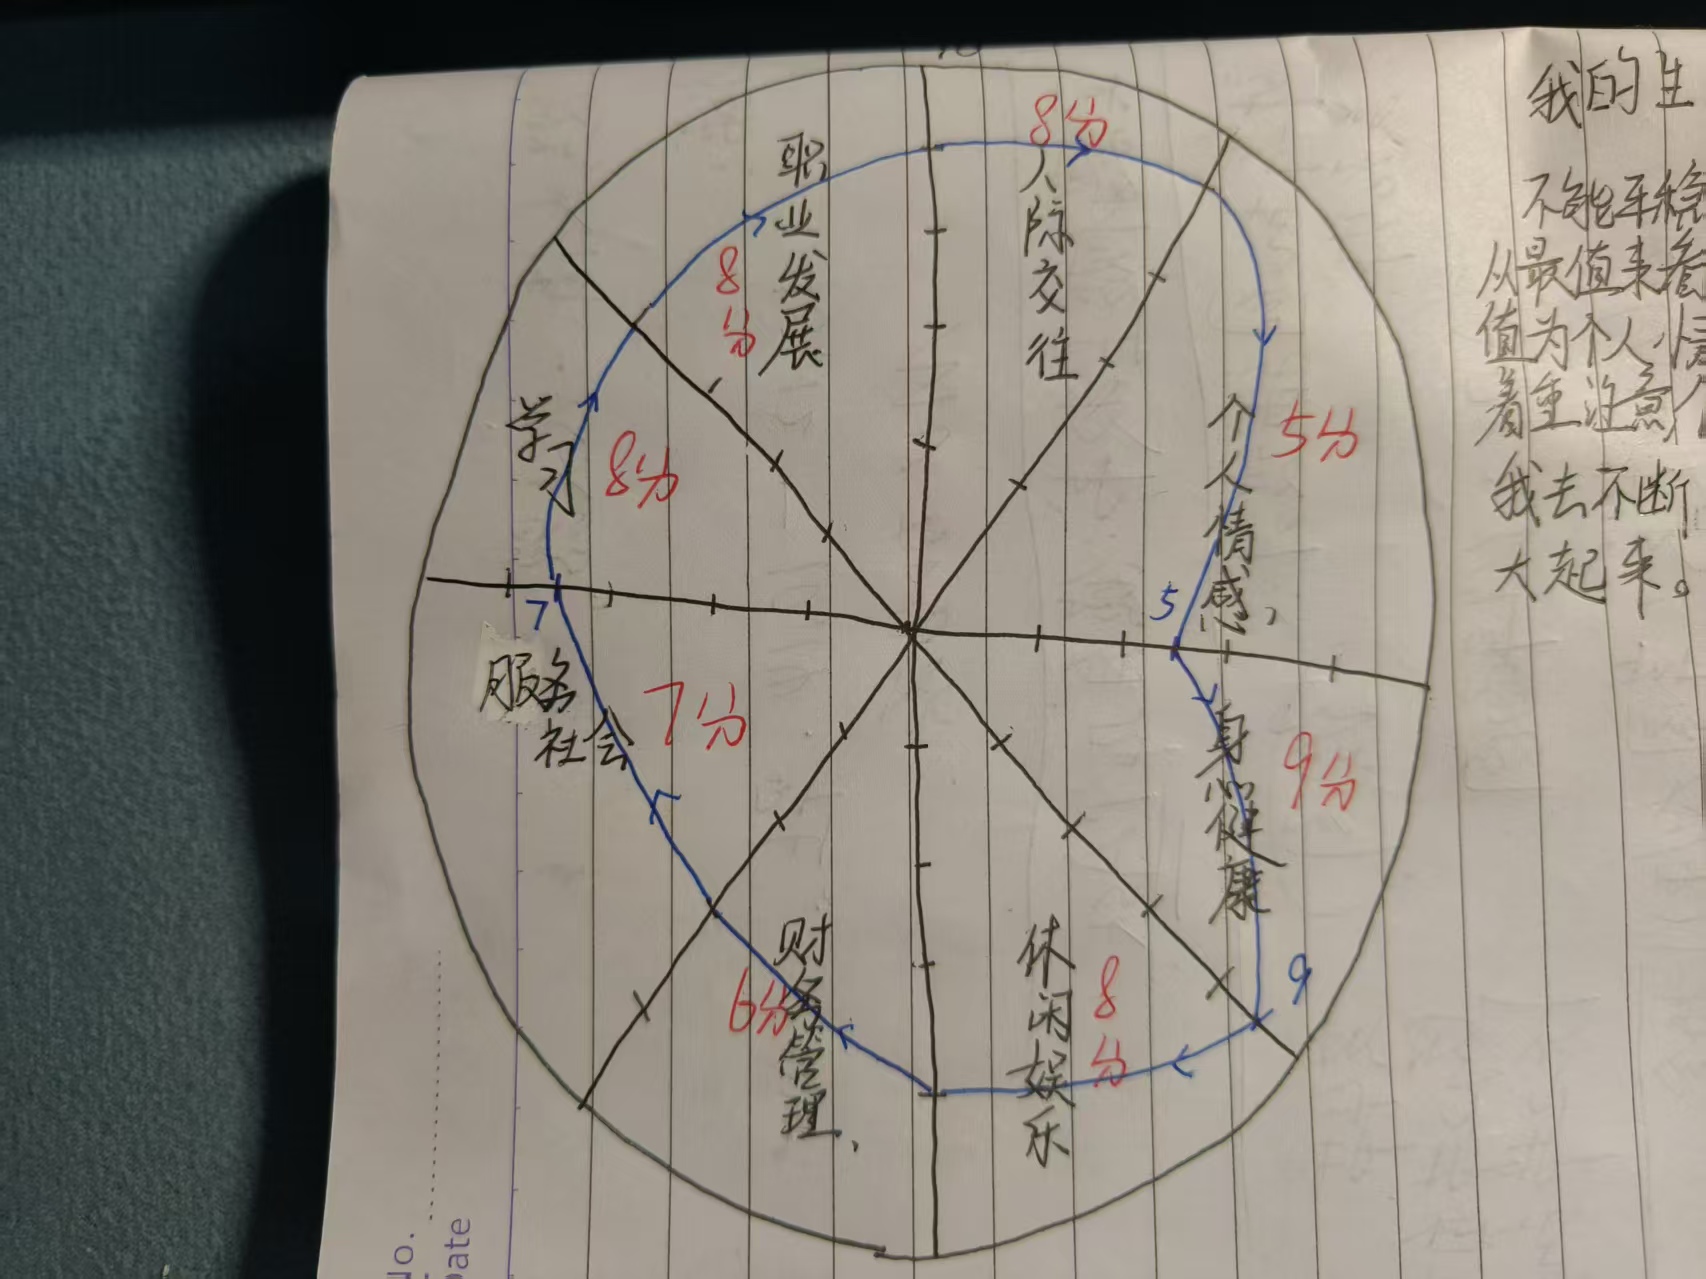 10
8分
人际交往
职业发展
8分
学习
8分
个人情感、
5分
5
7
服务
社会
7分
身心健康
9分
9
财务管理、
6分
休闲娱乐
8分
我的生
不能平稳
从最值来看
值为个人情
着重注意
我去不断
大起来。
No.
Date